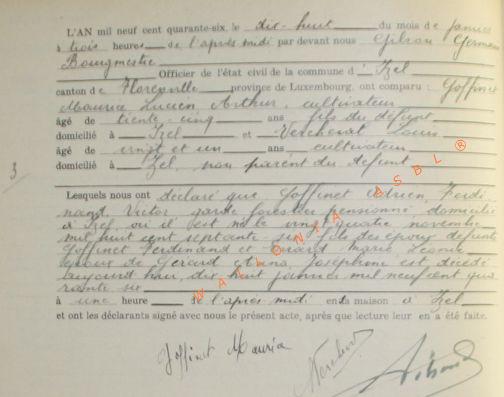 L'AN mil neuf cent quarante-six, le dix-huit du mois de janvier
à trois heures de l'après midi par devant nous Gilson Germain
Bourgmestre
Officier de l'état civil de la commune d' Izel
canton de Florenville province de Luxembourg, ont comparu : Goffinet
Maurice, Lucien, Arthur, cultivateur
âgé de trente-cinq ans fils du défunt
domicilié à Izel et Louis
âgé de vingt et un ans cultivateur
domicilié à Izel, non parent du défunt
3
Lesquels nous ont déclaré que Goffinet Adrien, Ferdi
nand, Victor, garde forestier pensionné, domicilié
à Izel, où il est né le vingt quatre novembre
mil huit cent septante six, fils des époux défunts
Goffinet Ferdinand et Marie,
époux de Gérard Joséphine est décédé
aujourd'hui, dix huit janvier mil neuf cent qua
rante six
à une heure de l'après midi en sa maison à Izel
et ont les déclarants signé avec nous le présent acte, après que lecture leur en a été faite.
Goffinet Maurice
WALLONIA ASBL ®